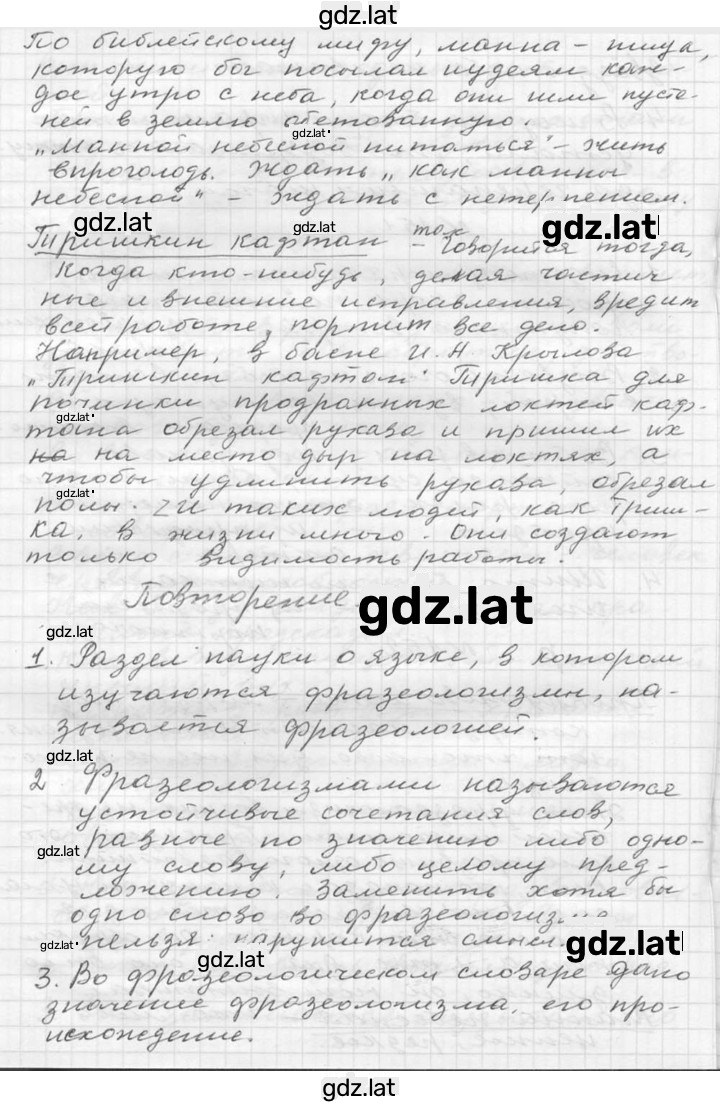 gdz.lat
По библейскому мифу, манна – пища,
которую бог посылал иудеям каж-
дое утро с неба, когда они шли пусты-
ней в землю обетованную.
gdz.lat
„Манной небесной питаться" – жить
впроголодь. Ждать „как манны
небесной" – ждать с нетерпением.
gdz.lat
gdz.lat
Тришкин кафтан – так говорится тогда,
когда кто-нибудь, делая частич
ные и внешние исправления, вредит
всей работе, портит все дело.
gdz.lat
Например, в басне И. А. Крылова
„Тришкин кафтан" Тришка для
починки продранных локтей каф-
gdz.lat
тана обрезал рукава и пришил их
на на место дыр на локтях, а
чтобы удлинить рукава, обрезал
gdz.lat
полы. И таких людей, как Триш-
ка, в жизни много. Они создают
только видимость работы.
Повторение.
gdz.lat
gdz.lat
1. Раздел науки о языке, в котором
изучаются фразеологизмы, на-
зывается фразеологией.
gdz.lat
2 Фразеологизмами называются
устойчивые сочетания слов,
равные по значению либо одно-
gdz.lat
му слову, либо целому пред-
ложению. Заменить хотя бы
одно слово во фразеологиз
gdz.lat
нельзя: нарушится смысл
gdz.lat
gdz.lat
3. Во фразеологическом словаре дано
значение фразеологизма, его про-
исхождение.
gdz.lat